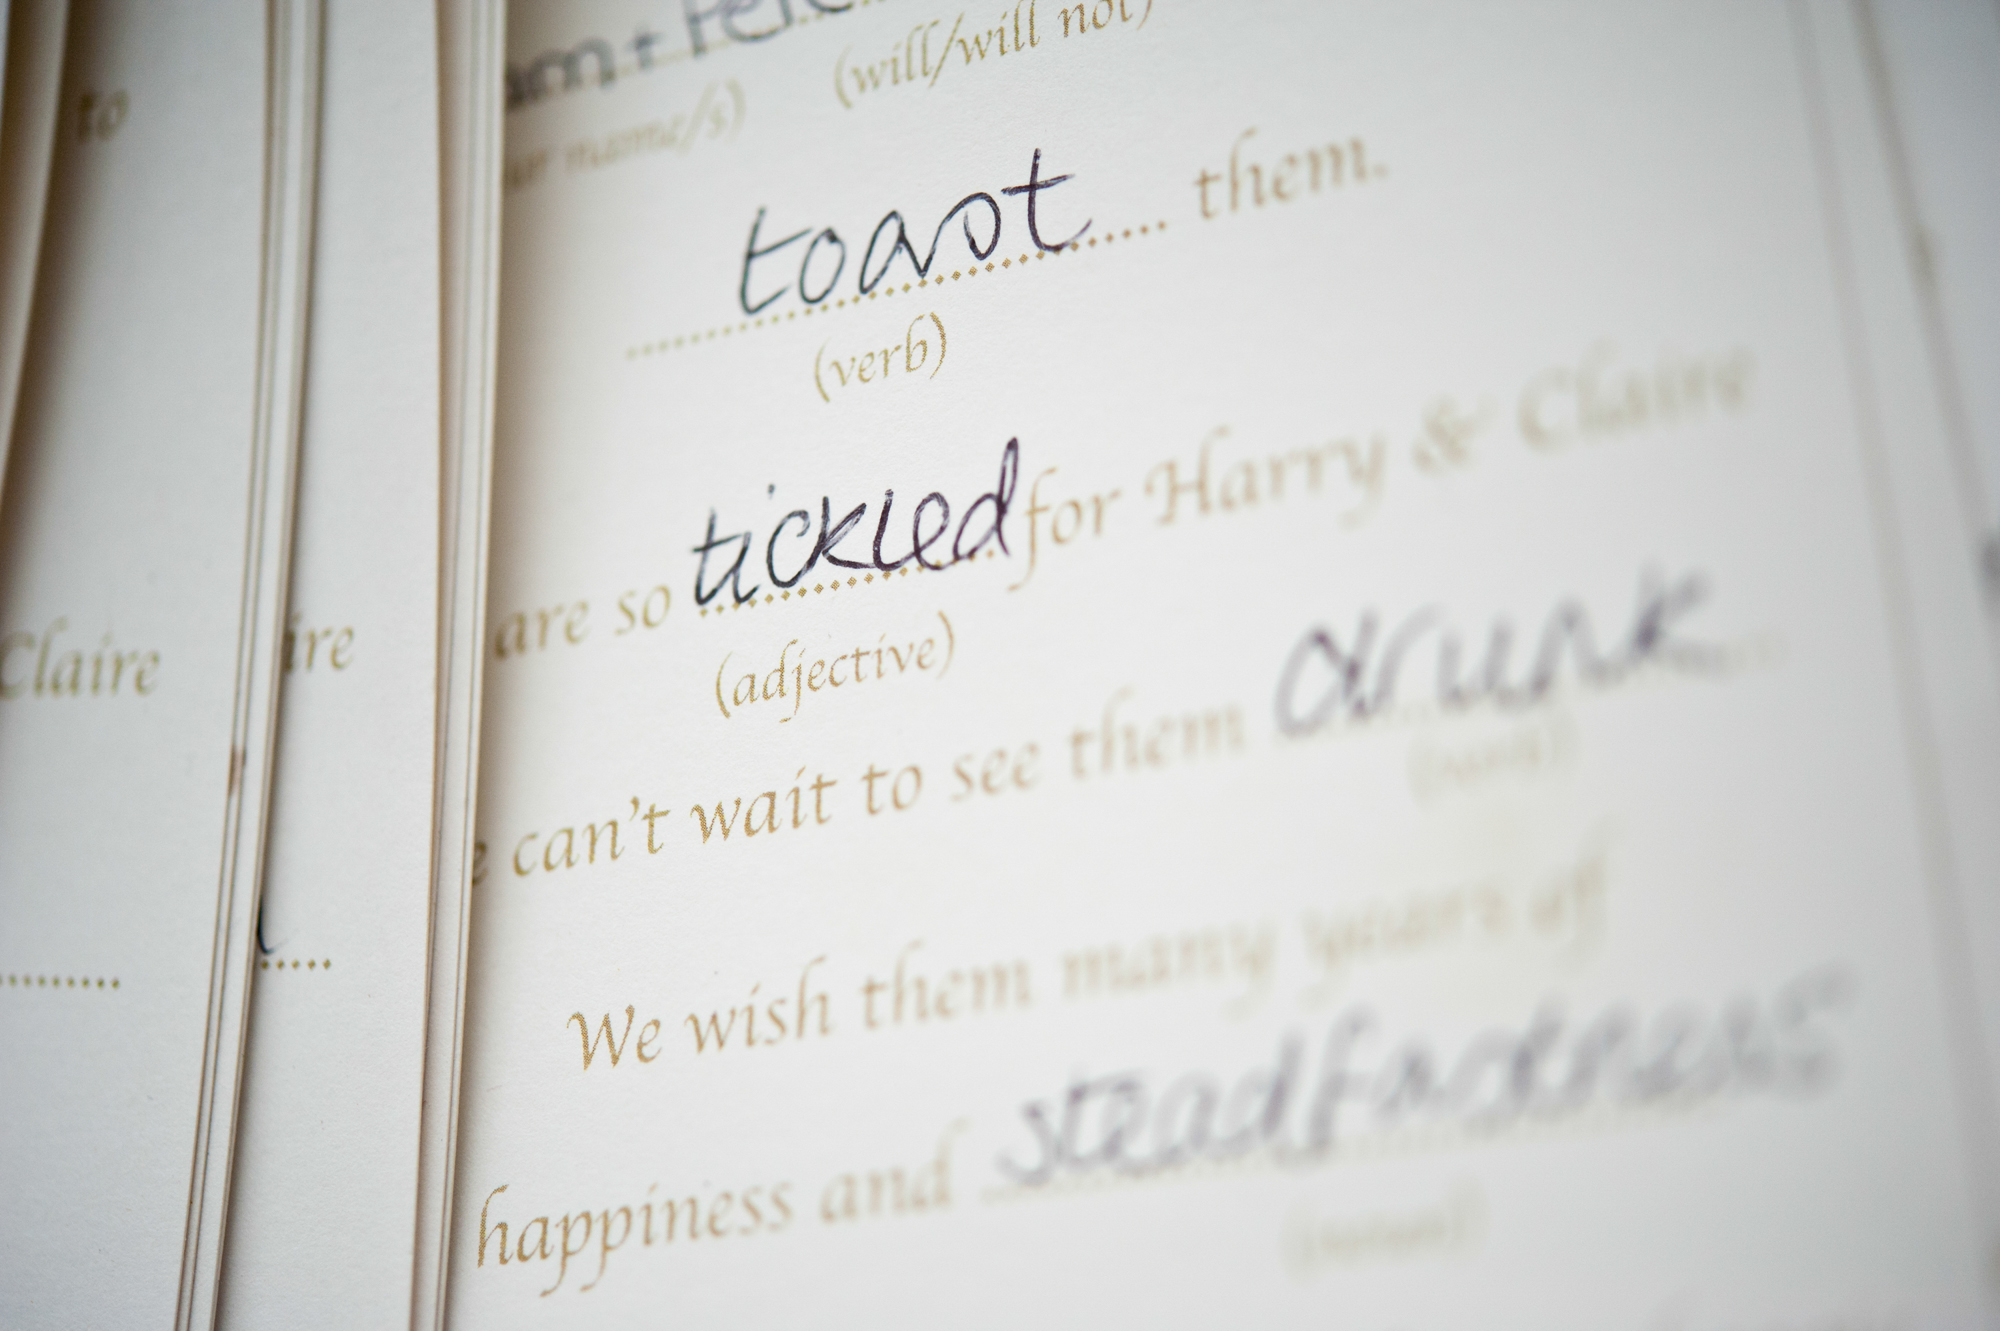 to
Claire
ire
(will/will not)
ur name/s)
toast them.
(verb)
are so tickled for Harry & Claire
(adjective)
e can't wait to see them drunk
(verb)
We wish them many years of
happiness and steadfastness
(noun)